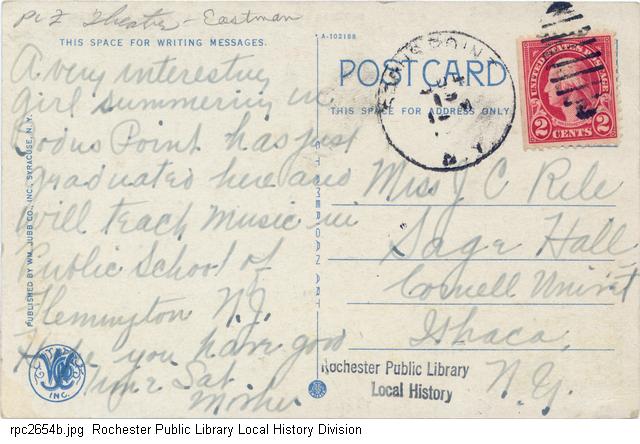 Pic Z Theatre - Eastman
THIS SPACE FOR WRITING MESSAGES.
A very interesting
girl summering in
Sodus Point has just
graduated here and
will teach Music in
Public School of
Flemington N.J.
Hope you have good
time Sat.
Mother
PUBLISHED BY WM. JUBB CO., INC., SYRACUSE, N.Y.
INC.
A-102188
POST CARD
THIS SPACE FOR ADDRESS ONLY
SODUS POINT
N.Y.
UNITED STATES POSTAGE
2 CENTS 2
Miss J C Rile
Sage Hall
Cornell Univ't
Ithaca,
N.Y.
Rochester Public Library
Local History
rpc2654b.jpg Rochester Public Library Local History Division